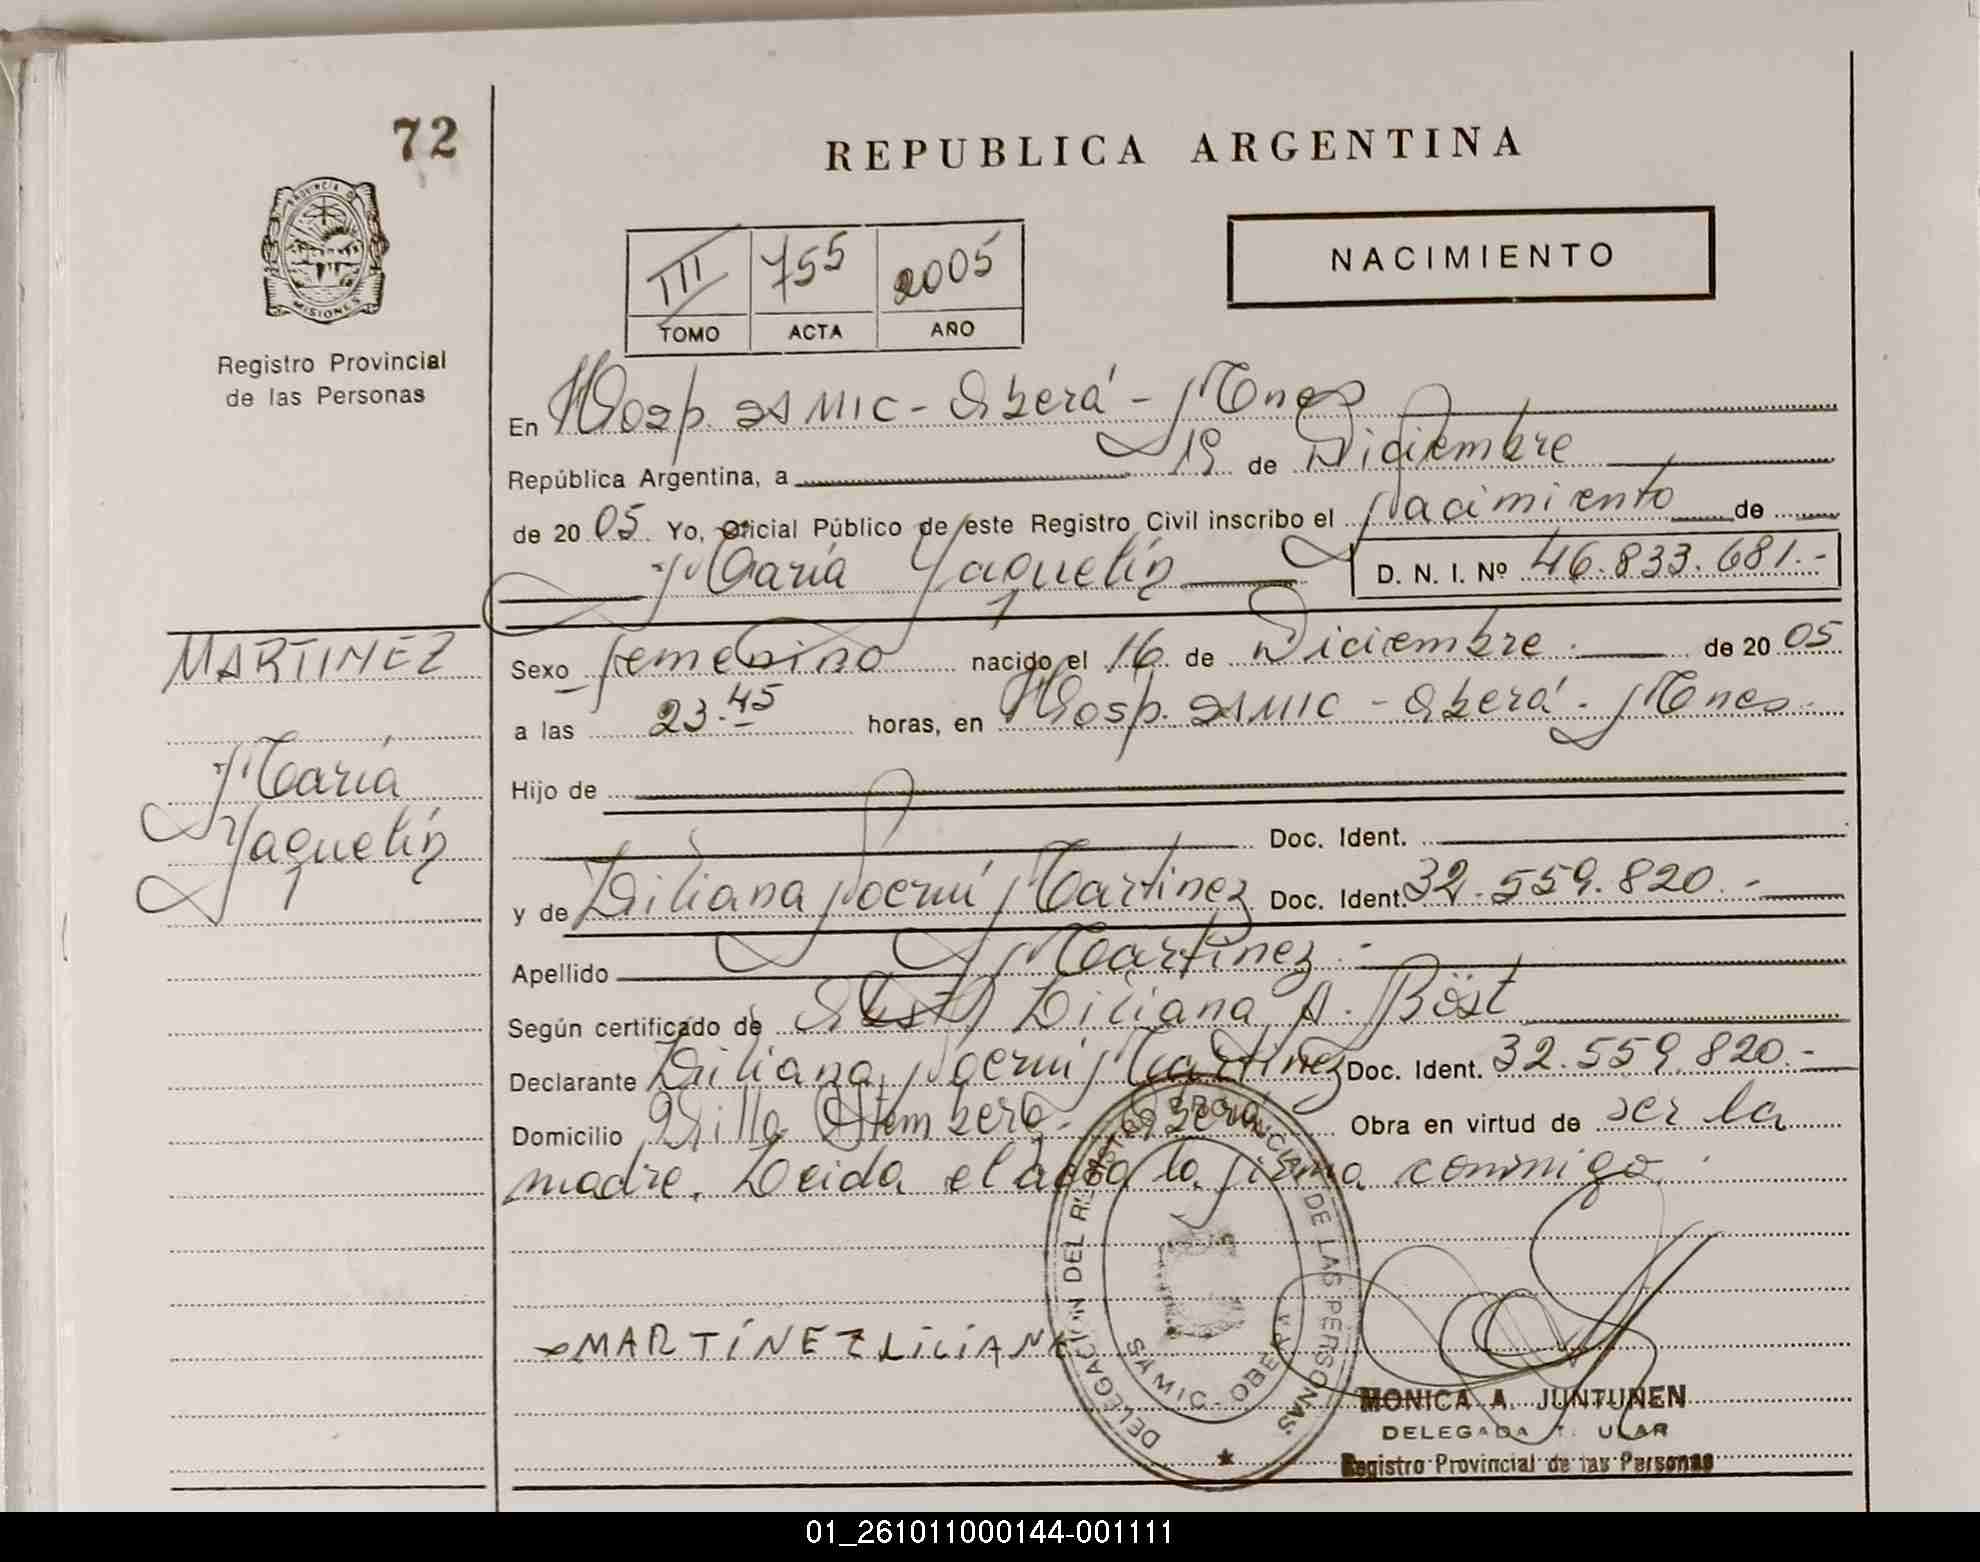 72
REPUBLICA ARGENTINA
PROVINCIA DE MISIONES
Registro Provincial
de las Personas
III 755 2005
TOMO ACTA AÑO
NACIMIENTO
En Hosp. SAMIC - Oberá - Mnes
República Argentina, a 19 de Diciembre
de 2005 Yo, Oficial Público de este Registro Civil inscribo el Nacimiento de
María Yaquelín D. N. I. Nº 46.833.681.-
MARTINEZ
María
Yaquelín
Sexo femenino nacido el 16 de Diciembre.- de 2005
a las 23.45 horas, en Hosp. SAMIC - Oberá - Mnes.
Hijo de
Doc. Ident.
y de Liliana Noemí Martinez Doc. Ident. 32.559.820.-
Apellido Martinez.-
Según certificado de Obst. Liliana A. Böst
Declarante Liliana Noemí Martinez Doc. Ident. 32.559.820.-
Domicilio Villa Stemberg - Oberá Obra en virtud de ser la
madre. Leida el acta la firma conmigo.
MARTÍNEZ LILIANA
DELEGACION DEL REGISTRO PROVINCIAL DE LAS PERSONAS
SAMIC - OBERA
MONICA A. JUNTUNEN
DELEGADA TITULAR
Registro Provincial de las Personas
01_261011000144-001111